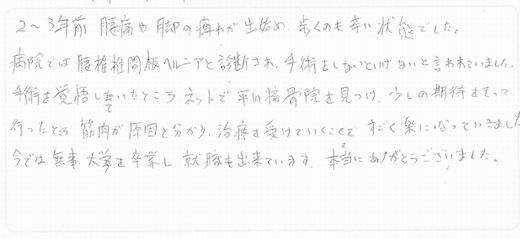 2〜3年前 腰痛や脚の痺れが出始め、歩くのも辛い状態でした。
病院では腰椎椎間板ヘルニアと診断され、手術をしないといけないと言われていました。
手術を覚悟していたところ ネットで平川接骨院を見つけ、少しの期待をもって
行ったところ 筋肉が原因と分かり、治療を受けていくことで すごく楽になっていきました
今では無事 大学を卒業し 就職も出来ています。本当にありがとうございました。